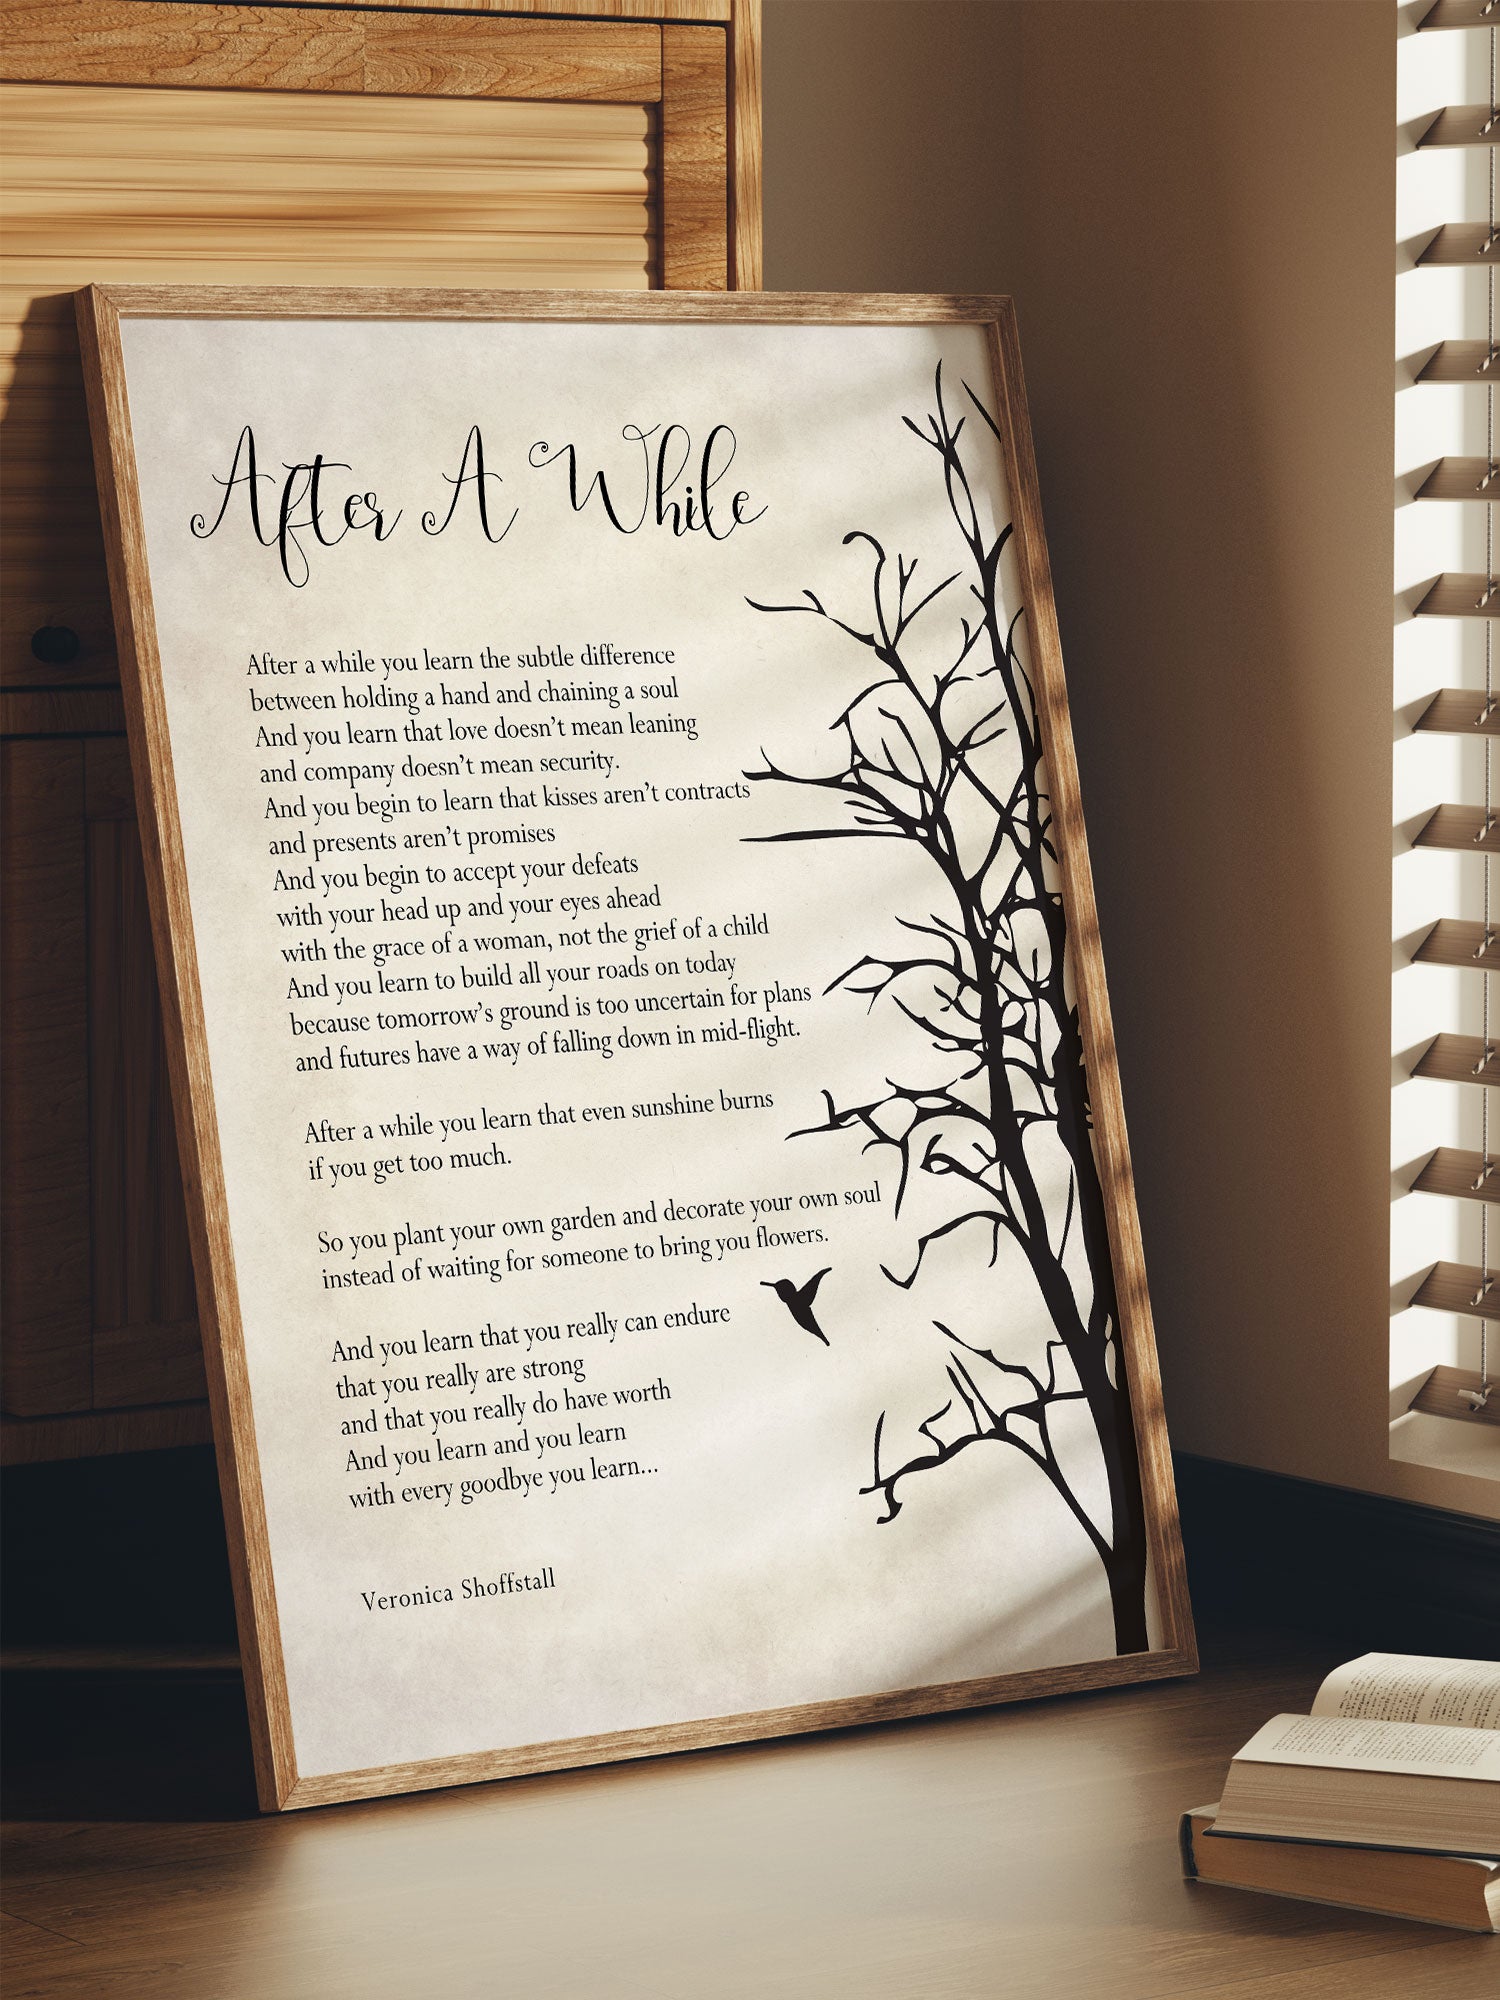 After A While
After a while you learn the subtle difference
between holding a hand and chaining a soul
And you learn that love doesn't mean leaning
and company doesn't mean security.
And you begin to learn that kisses aren't contracts
and presents aren't promises
And you begin to accept your defeats
with your head up and your eyes ahead
with the grace of a woman, not the grief of a child
And you learn to build all your roads on today
because tomorrow's ground is too uncertain for plans
and futures have a way of falling down in mid-flight.
After a while you learn that even sunshine burns
if you get too much.
So you plant your own garden and decorate your own soul
instead of waiting for someone to bring you flowers.
And you learn that you really can endure
that you really are strong
and that you really do have worth
And you learn and you learn
with every goodbye you learn...
Veronica Shoffstall